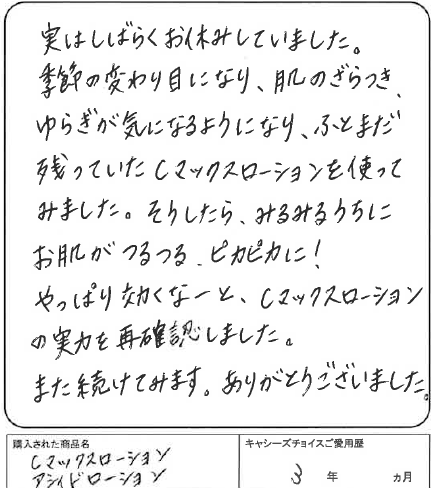 実はしばらくお休みしていました。
季節の変わり目になり、肌のざらつき、
ゆらぎが気になるようになり、ふとまだ
残っていたCマックスローションを使って
みました。そうしたら、みるみるうちに
お肌がつるつる、ピカピカに！
やっぱり効くなーと、Cマックスローション
の実力を再確認しました。
また続けてみます。ありがとうございました。
購入された商品名
Cマックスローション
アシィドローション
キャシーズチョイスご愛用歴
3 年 ヵ月